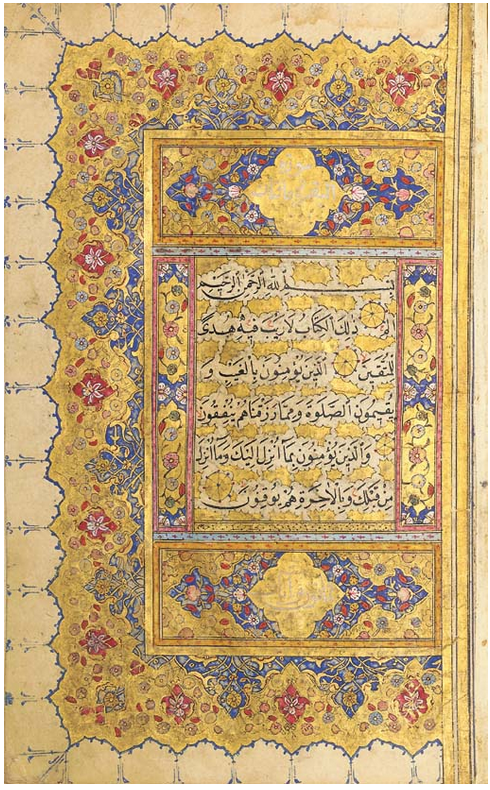 بسم الله الرحمن الرحيم
الم ذلك الكتاب لا ريب فيه هدى
للمتقين الذين يؤمنون بالغيب و
يقيمون الصلوة ومما رزقناهم ينفقون
والذين يؤمنون بما انزل اليك وما انزل
من قبلك وبالاخرة هم يوقنون